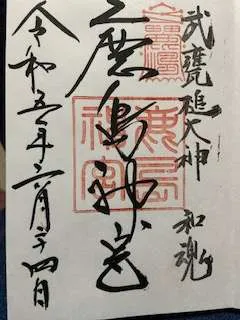 武甕槌大神 和魂
鹿島神宮
鹿島神宮
令和五年六月二十四日